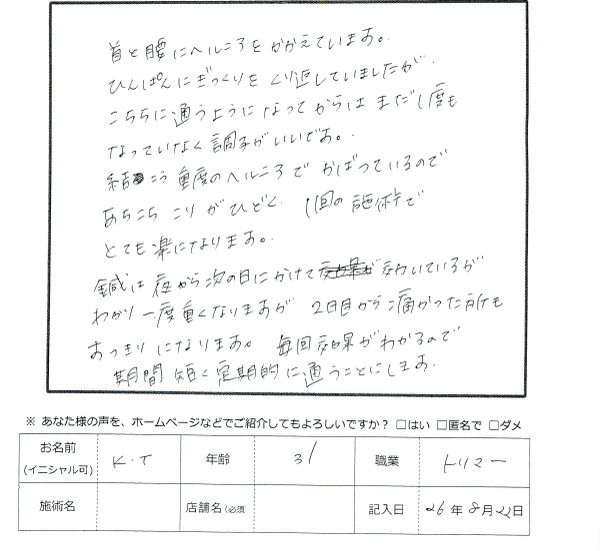 首と腰にヘルニアをかかえています。
ひんぱんにぎっくりをくり返していましたが、
こちらに通うようになってからはまだ1度も
なっていなく調子がいいです。
結こう重度のヘルニアでかばっているので
あちこちこりがひどく、1回の施術で
とても楽になります。
鍼は夜から次の日にかけて効いているが
わかり一度重くなりますが2日目から痛かった所も
すっきりになります。毎回効果がわかるので
期間短く定期的に通うことにします。
※ あなた様の声を、ホームページなどでご紹介してもよろしいですか？ □はい □匿名で □ダメ
お名前 (イニシャル可) K.T 年齢 31 職業 トリマー
施術名 店舗名(必須 記入日 26年8月22日